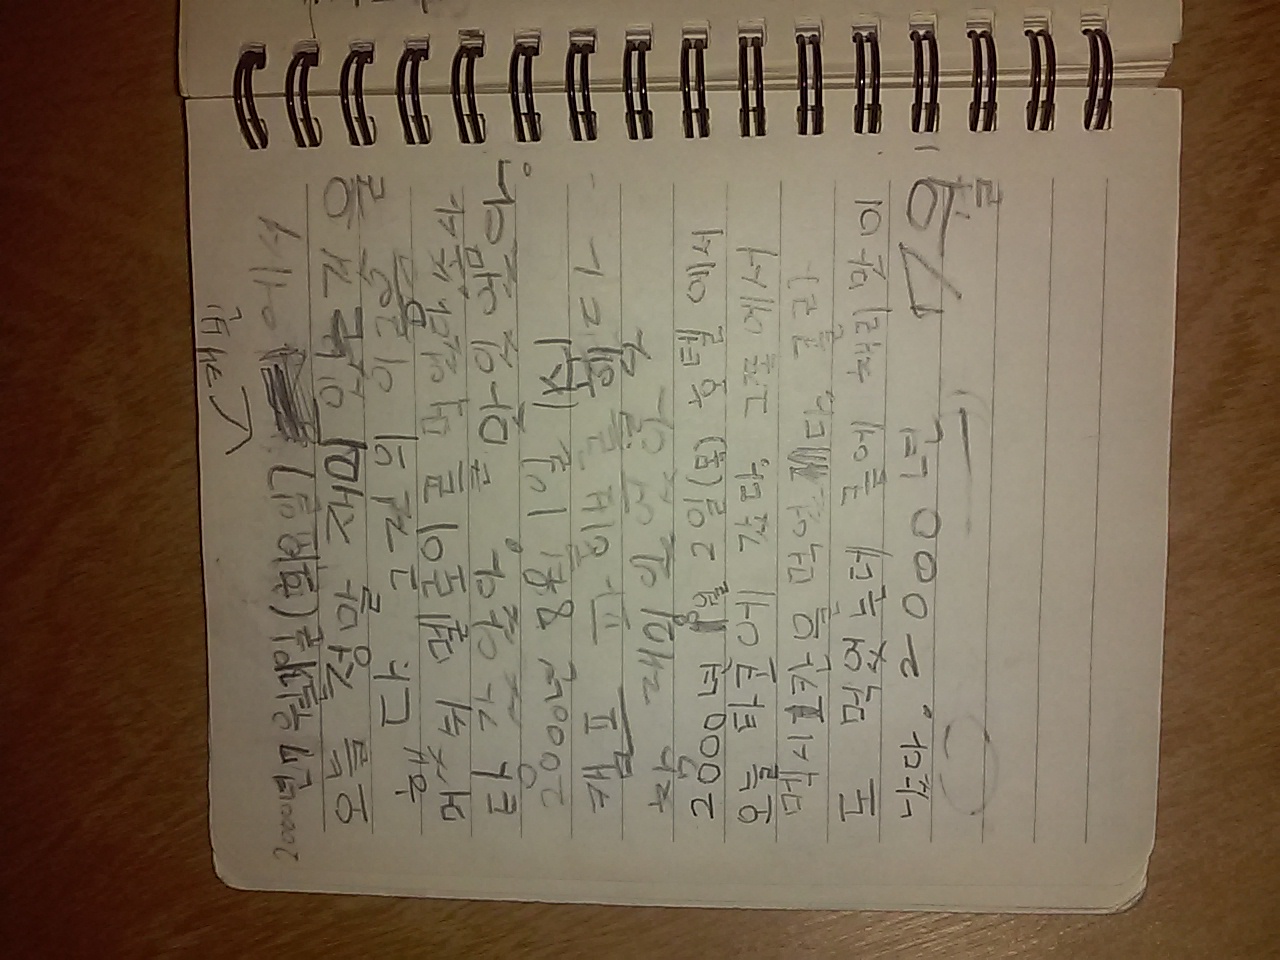 캐빈
2000년 7월 일 (화요일) 에서
오늘 정말 재미 있는 것을
했다. 그것의 이름은
머쉬 멜로이를 먹었다 솜사
탕 갔았다. 맛있었다.
2000년 8월 1일 (수)
캠프 파이브를 했다
참 재미 있었다
2000년 8월 2일(목) 호텔에서
오늘 타코에 갔다. 그쪽에서
멕시칸을 먹었다. 콜라
도 먹었는데 콜에 체리맛이
났다. 2000년 7월